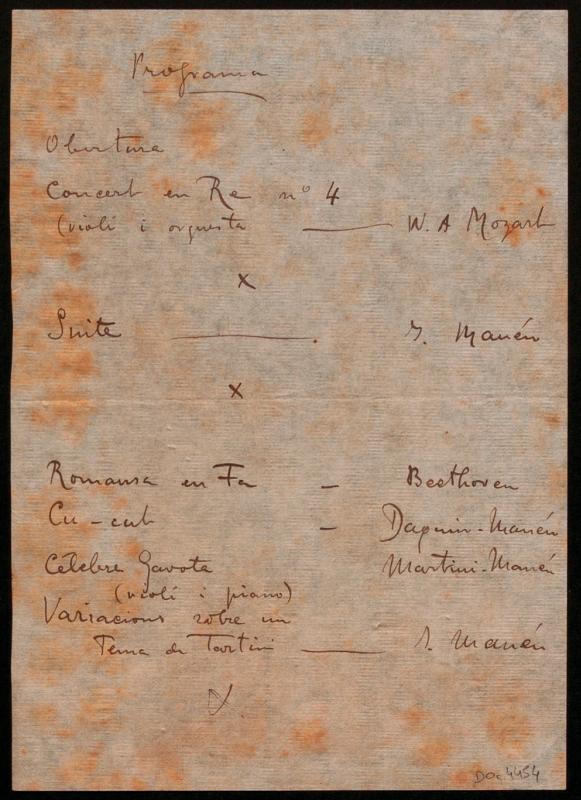 Programa
Obertura
Concert en Re nº 4
(violí i orquesta — W. A Mozart
x
Suite —. J. Manén
x
Romansa en Fa – Beethoven
Cu-cut – Daquin-Manén
Célebre Gavota Martini-Manén
(violí i piano)
Variacions sobre un
Tema de Tartini — J. Manén
Doc 4454